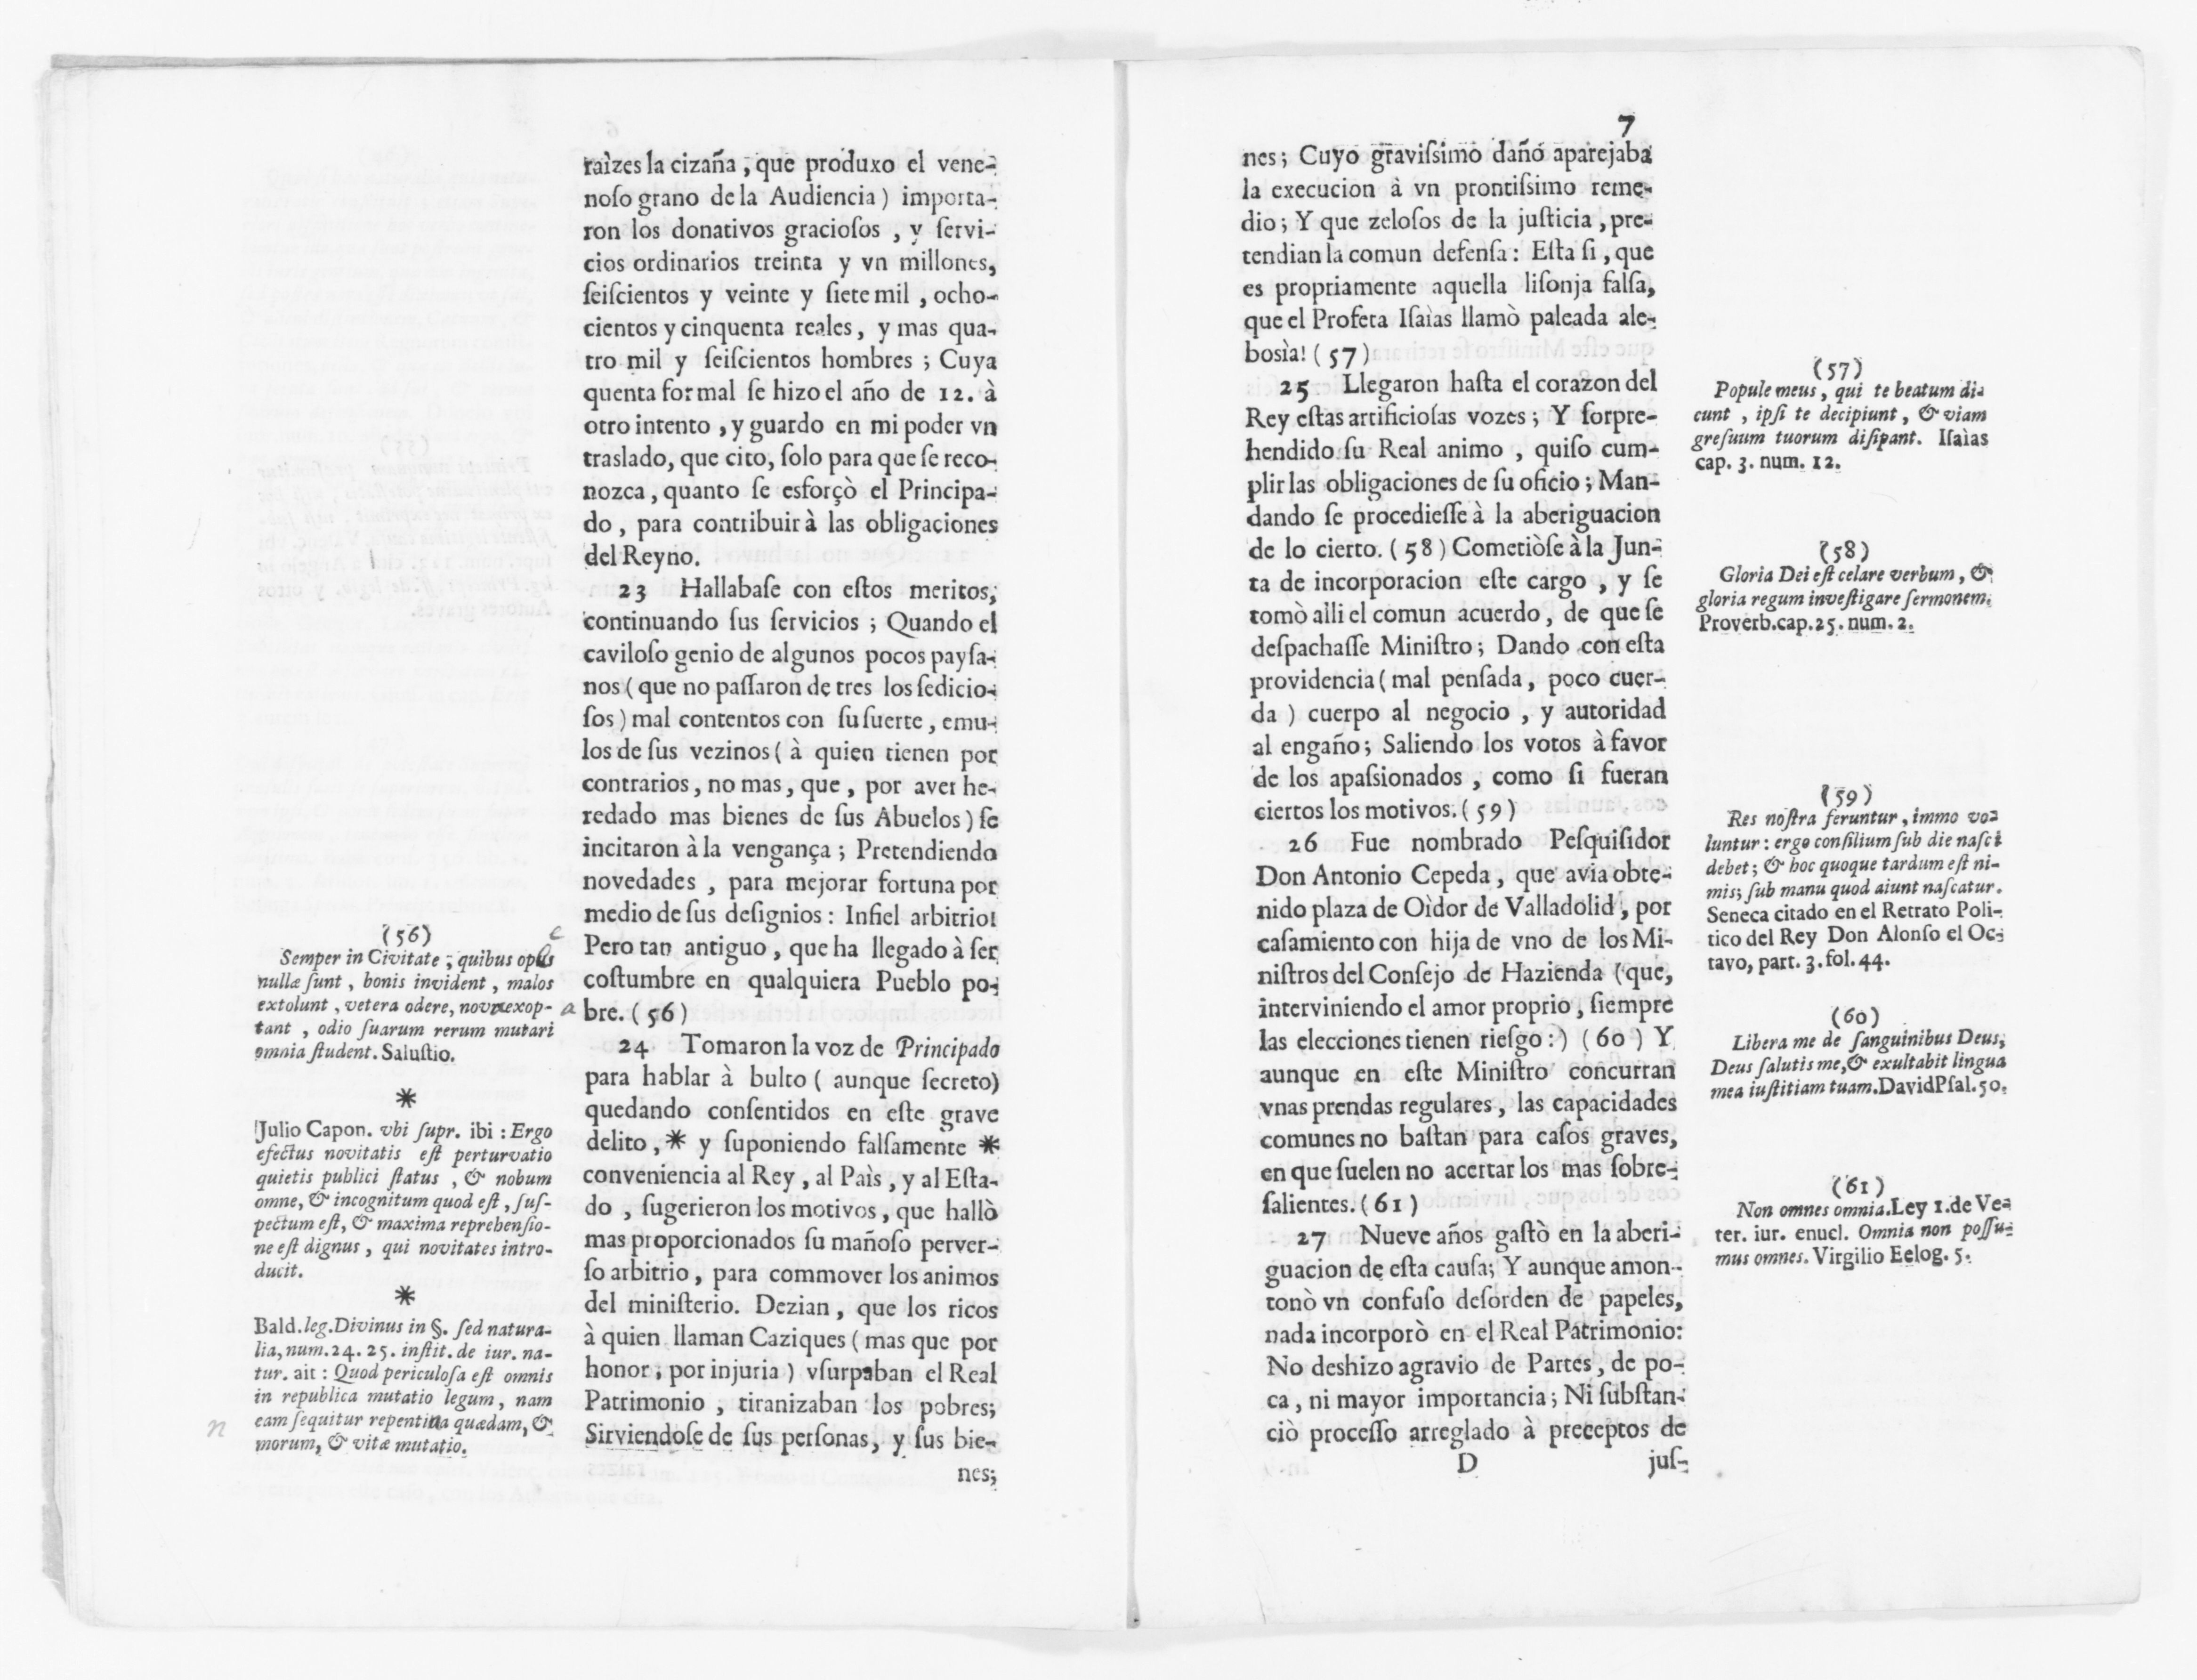 raìzes la cizaña, que produxo el vene-
noſo grano de la Audiencia) importa-
ron los donativos gracioſos, y ſervi-
cios ordinarios treinta y vn millones,
ſeiſcientos y veinte y ſiete mil, ocho-
cientos y cinquenta reales, y mas qua-
tro mil y ſeiſcientos hombres; Cuya
quenta formal ſe hizo el año de 12. à
otro intento, y guardo en mi poder vn
traslado, que cito, ſolo para que ſe reco-
nozca, quanto ſe esforçò el Principa-
do, para contribuir à las obligaciones
del Reyno.
23 Hallabaſe con eſtos meritos,
continuando ſus ſervicios; Quando el
caviloſo genio de algunos pocos payſa-
nos (que no paſſaron de tres los ſedicio-
ſos) mal contentos con ſu ſuerte, emu-
los de ſus vezinos (à quien tienen por
contrarios, no mas, que, por aver he-
redado mas bienes de ſus Abuelos) ſe
incitaron à la vengança; Pretendiendo
novedades, para mejorar fortuna por
medio de ſus deſignios: Infiel arbitrio!
Pero tan antiguo, que ha llegado à ſer
coſtumbre en qualquiera Pueblo po-
bre. (56)
24 Tomaron la voz de Principado
para hablar à bulto (aunque ſecreto)
quedando conſentidos en eſte grave
delito, * y ſuponiendo falſamente *
conveniencia al Rey, al Paìs, y al Eſta-
do, ſugerieron los motivos, que hallò
mas proporcionados ſu mañoſo perver-
ſo arbitrio, para commover los animos
del miniſterio. Dezian, que los ricos
à quien llaman Caziques (mas que por
honor, por injuria) vſurpaban el Real
Patrimonio, tiranizaban los pobres;
Sirviendoſe de ſus perſonas, y ſus bie-
nes;
(56)
Semper in Civitate; quibus opes
nullæ ſunt, bonis invident, malos
extolunt, vetera odere, nova exop-
tant, odio ſuarum rerum mutari
omnia ſtudent. Saluſtio.
*
Julio Capon. vbi ſupr. ibi: Ergo
efectus novitatis eſt perturvatio
quietis publici ſtatus, & nobum
omne, & incognitum quod eſt, ſuſ-
pectum eſt, & maxima reprehenſio-
ne eſt dignus, qui novitates intro-
ducit.
*
Bald. leg. Divinus in §. ſed natura-
lia, num. 24. 25. inſtit. de iur. na-
tur. ait: Quod periculoſa eſt omnis
in republica mutatio legum, nam
eam ſequitur repentina quædam, &
morum, & vitæ mutatio.
7
nes; Cuyo graviſſimo dañó aparejaba
la execucion à vn prontiſsimo reme-
dio; Y que zeloſos de la juſticia, pre-
tendian la comun defenſa: Eſta ſi, que
es propriamente aquella liſonja falſa,
que el Profeta Iſaìas llamò paleada ale-
bosìa! (57)
25 Llegaron haſta el corazon del
Rey eſtas artificioſas vozes; Y ſorpre-
hendido ſu Real animo, quiſo cum-
plir las obligaciones de ſu oficio; Man-
dando ſe procedieſſe à la aberiguacion
de lo cierto. (58) Cometiòſe à la Jun-
ta de incorporacion eſte cargo, y ſe
tomò alli el comun acuerdo, de que ſe
deſpachaſſe Miniſtro; Dando con eſta
providencia (mal penſada, poco cuer-
da) cuerpo al negocio, y autoridad
al engaño; Saliendo los votos à favor
de los apaſsionados, como ſi fueran
ciertos los motivos. (59)
26 Fue nombrado Peſquiſidor
Don Antonio Cepeda, que avia obte-
nido plaza de Oìdor de Valladolid, por
caſamiento con hija de vno de los Mi-
niſtros del Conſejo de Hazienda (que,
interviniendo el amor proprio, ſiempre
las elecciones tienen rieſgo:) (60) Y
aunque en eſte Miniſtro concurran
vnas prendas regulares, las capacidades
comunes no baſtan para caſos graves,
en que ſuelen no acertar los mas ſobre-
ſalientes. (61)
27 Nueve años gaſtò en la aberi-
guacion de eſta cauſa; Y aunque amon-
tonò vn confuſo deſorden de papeles,
nada incorporò en el Real Patrimonio:
No deshizo agravio de Partes, de po-
ca, ni mayor importancia; Ni ſubſtan-
ciò proceſſo arreglado à preceptos de
D juſ-
(57)
Popule meus, qui te beatum di-
cunt, ipſi te decipiunt, & viam
greſuum tuorum diſipant. Iſaìas
cap. 3. num. 12.
(58)
Gloria Dei eſt celare verbum, &
gloria regum inveſtigare ſermonem.
Proverb. cap. 25. num. 2.
(59)
Res noſtra feruntur, immo vo-
luntur: ergo conſilium ſub die naſci
debet; & hoc quoque tardum eſt ni-
mis; ſub manu quod aiunt naſcatur.
Seneca citado en el Retrato Poli-
tico del Rey Don Alonſo el Oc-
tavo, part. 3. fol. 44.
(60)
Libera me de ſanguinibus Deus,
Deus ſalutis me, & exultabit lingua
mea iuſtitiam tuam. David Pſal. 50.
(61)
Non omnes omnia. Ley 1. de Ve-
ter. iur. enucl. Omnia non poſſu-
mus omnes. Virgilio Eelog. 5.